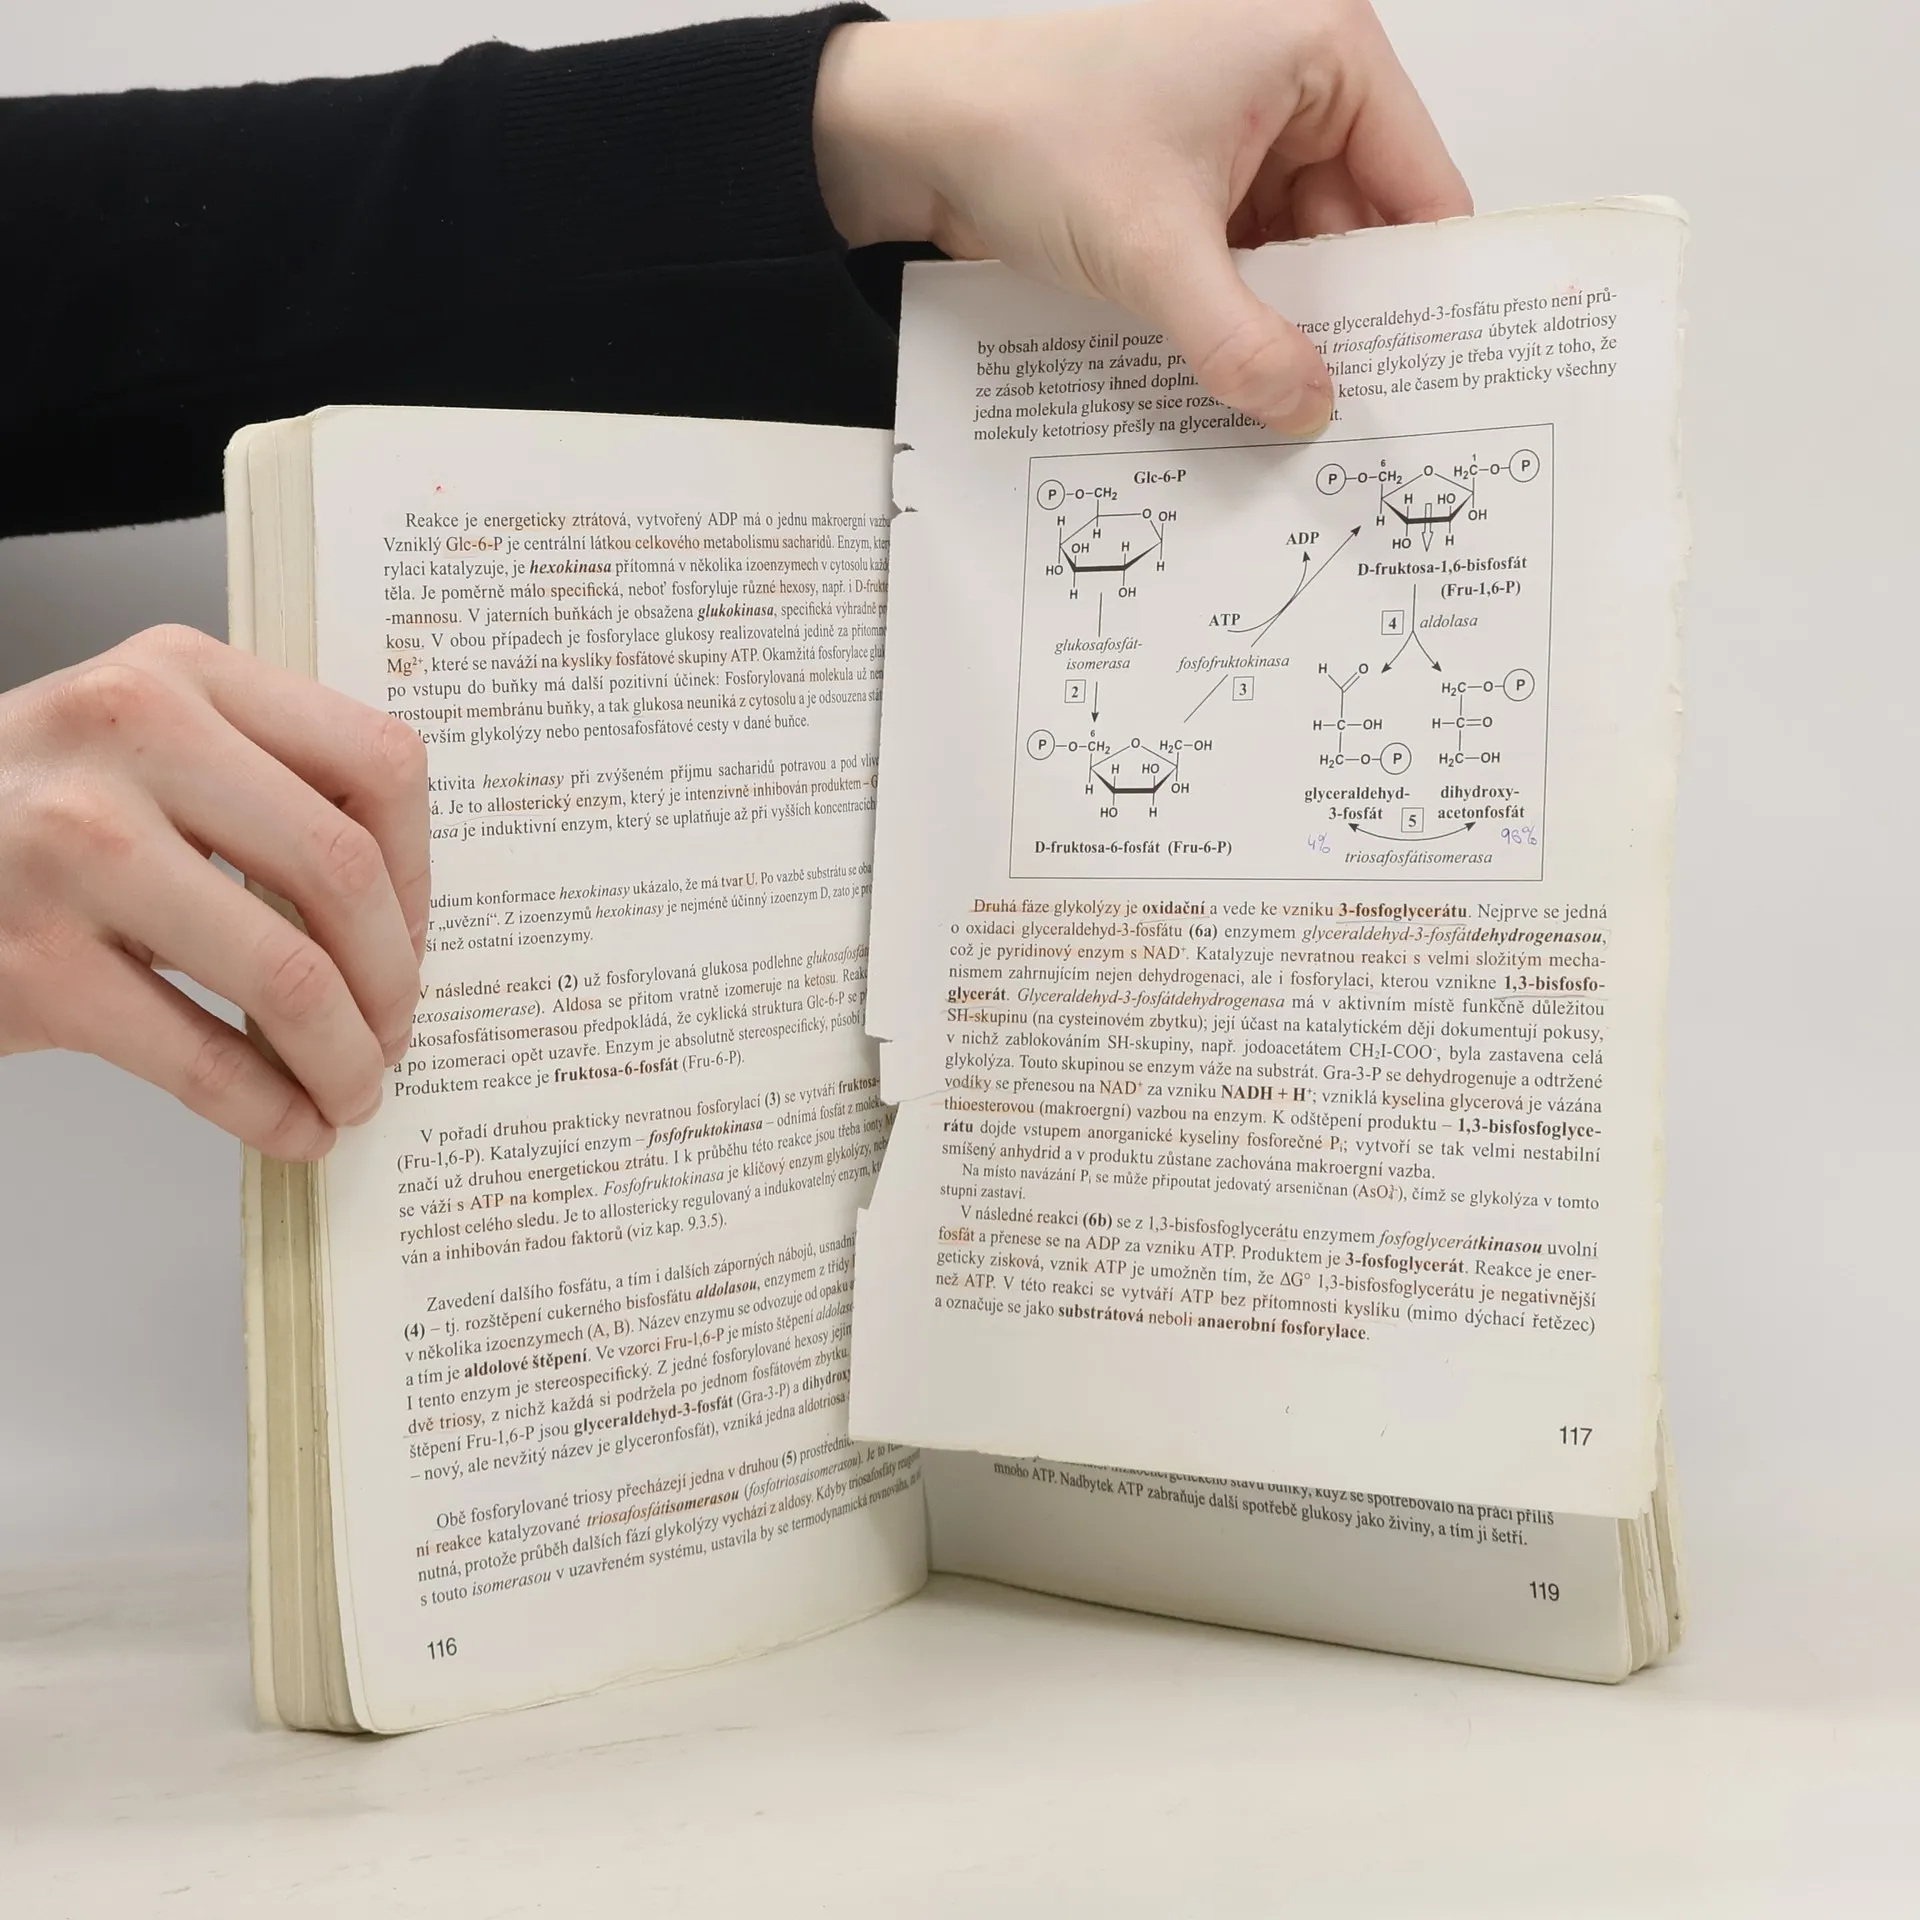 Reakce je energeticky ztrátová, vytvořený ADP má o jednu makroergní
Vzniklý Glc-6-P je centrální látkou celkového metabolismu sacharidů. Enzym,
rylaci katalyzuje, je hexokinasa přítomná v několika izoenzymech v cytosolu
těla. Je poměrně málo specifická, neboť fosforyluje různé hexosy, např. i
-mannosu. V jaterních buňkách je obsažena glukokinasa, specifická výhradně
kosu. V obou případech je fosforylace glukosy realizovatelná jedině za
Mg²⁺, které se naváží na kyslíky fosfátové skupiny ATP. Okamžitá fosforylace
po vstupu do buňky má další pozitivní účinek: Fosforylovaná molekula už
prostoupit membránu buňky, a tak glukosa neuniká z cytosolu a je odsouzena
glykolýzy nebo pentosafosfátové cesty v dané buňce.
hexokinasy při zvýšeném příjmu sacharidů potravou a pod
Je to allosterický enzym, který je intenzivně inhibován produktem –
je induktivní enzym, který se uplatňuje až při vyšších
konformace hexokinasy ukázalo, že má tvar U. Po vazbě substrátu se
„uvězní“. Z izoenzymů hexokinasy je nejméně účinný izoenzym D, zato je
než ostatní izoenzymy.
V následné reakci (2) už fosforylovaná glukosa podlehne
Aldosa se přitom vratně izomeruje na ketosu.
předpokládá, že cyklická struktura Glc-6-P se
a po izomeraci opět uzavře. Enzym je absolutně stereospecifický, působí
Produktem reakce je fruktosa-6-fosfát (Fru-6-P).
V pořadí druhou prakticky nevratnou fosforylací (3) se vytváří fruktosa-
(Fru-1,6-P). Katalyzující enzym – fosfofruktokinasa – odnímá fosfát z
značí už druhou energetickou ztrátu. I k průběhu této reakce jsou třeba ionty
se váží s ATP na komplex. Fosfofruktokinasa je klíčový enzym glykolýzy,
rychlost celého sledu. Je to allostericky regulovaný a indukovatelný enzym,
ván a inhibován řadou faktorů (viz kap. 9.3.5).
Zavedení dalšího fosfátu, a tím i dalších záporných nábojů,
(4) – tj. rozštěpení cukerného bisfosfátu aldolasou, enzymem z třídy
v několika izoenzymech (A, B). Název enzymu se odvozuje od opaku
a tím je aldolové štěpení. Ve vzorci Fru-1,6-P je místo štěpení
I tento enzym je stereospecifický. Z jedné fosforylované hexosy
dvě triosy, z nichž každá si podržela po jednom fosfátovém zbytku.
štěpení Fru-1,6-P jsou glyceraldehyd-3-fosfát (Gra-3-P) a
– nový, ale nevžitý název je glyceronfosfát), vzniká jedna aldotriosa
Obě fosforylované triosy přecházejí jedna v druhou (5)
ní reakce katalyzované triosafosfátisomerasou (fosfotriosaisomerasou). Je to
nutná, protože průběh dalších fází glykolýzy vychází z aldosy. Kdyby triosafosfáty
s touto isomerasou v uzavřeném systému, ustavila by se termodynamická rovnováha,
116
by obsah aldosy činil pouze glyceraldehyd-3-fosfátu přesto není prů-
běhu glykolýzy na závadu, triosafosfátisomerasa úbytek aldotriosy
ze zásob ketotriosy ihned doplní. bilanci glykolýzy je třeba vyjít z toho, že
jedna molekula glukosy se sice ketosu, ale časem by prakticky všechny
molekuly ketotriosy přešly na
Glc-6-P
P–O–CH₂
H O OH
H
OH H
HO H
H OH
glukosafosfát-
isomerasa
2
ADP
ATP
fosfofruktokinasa
3
6 1
P–O–CH₂ O H₂C–O–P
H HO
H OH
HO H
D-fruktosa-1,6-bisfosfát
(Fru-1,6-P)
4 aldolasa
6
P–O–CH₂ O H₂C–OH
H HO
H OH
HO H
D-fruktosa-6-fosfát (Fru-6-P)
H O
H–C–OH
H₂C–O–P
H₂C–O–P
H–C=O
H₂C–OH
glyceraldehyd-
3-fosfát
dihydroxy-
acetonfosfát
5
4% 96%
triosafosfátisomerasa
Druhá fáze glykolýzy je oxidační a vede ke vzniku 3-fosfoglycerátu. Nejprve se jedná
o oxidaci glyceraldehyd-3-fosfátu (6a) enzymem glyceraldehyd-3-fosfátdehydrogenasou,
což je pyridinový enzym s NAD⁺. Katalyzuje nevratnou reakci s velmi složitým mecha-
nismem zahrnujícím nejen dehydrogenaci, ale i fosforylaci, kterou vznikne 1,3-bisfosfo-
glycerát. Glyceraldehyd-3-fosfátdehydrogenasa má v aktivním místě funkčně důležitou
SH-skupinu (na cysteinovém zbytku); její účast na katalytickém ději dokumentují pokusy,
v nichž zablokováním SH-skupiny, např. jodoacetátem CH₂I-COO⁻, byla zastavena celá
glykolýza. Touto skupinou se enzym váže na substrát. Gra-3-P se dehydrogenuje a odtržené
vodíky se přenesou na NAD⁺ za vzniku NADH + H⁺; vzniklá kyselina glycerová je vázána
thioesterovou (makroergní) vazbou na enzym. K odštěpení produktu – 1,3-bisfosfoglyce-
rátu dojde vstupem anorganické kyseliny fosforečné Pᵢ; vytvoří se tak velmi nestabilní
smíšený anhydrid a v produktu zůstane zachována makroergní vazba.
Na místo navázání Pᵢ se může připoutat jedovatý arseničnan (AsO₄³⁻), čímž se glykolýza v tomto
stupni zastaví.
V následné reakci (6b) se z 1,3-bisfosfoglycerátu enzymem fosfoglycerátkinasou uvolní
fosfát a přenese se na ADP za vzniku ATP. Produktem je 3-fosfoglycerát. Reakce je ener-
geticky zisková, vznik ATP je umožněn tím, že ΔG° 1,3-bisfosfoglycerátu je negativnější
než ATP. V této reakci se vytváří ATP bez přítomnosti kyslíku (mimo dýchací řetězec)
a označuje se jako substrátová neboli anaerobní fosforylace.
117
nízkoenergetického stavu buňky, když se spotřebovalo na práci příliš
mnoho ATP. Nadbytek ATP zabraňuje další spotřebě glukosy jako živiny, a tím ji šetří.
119